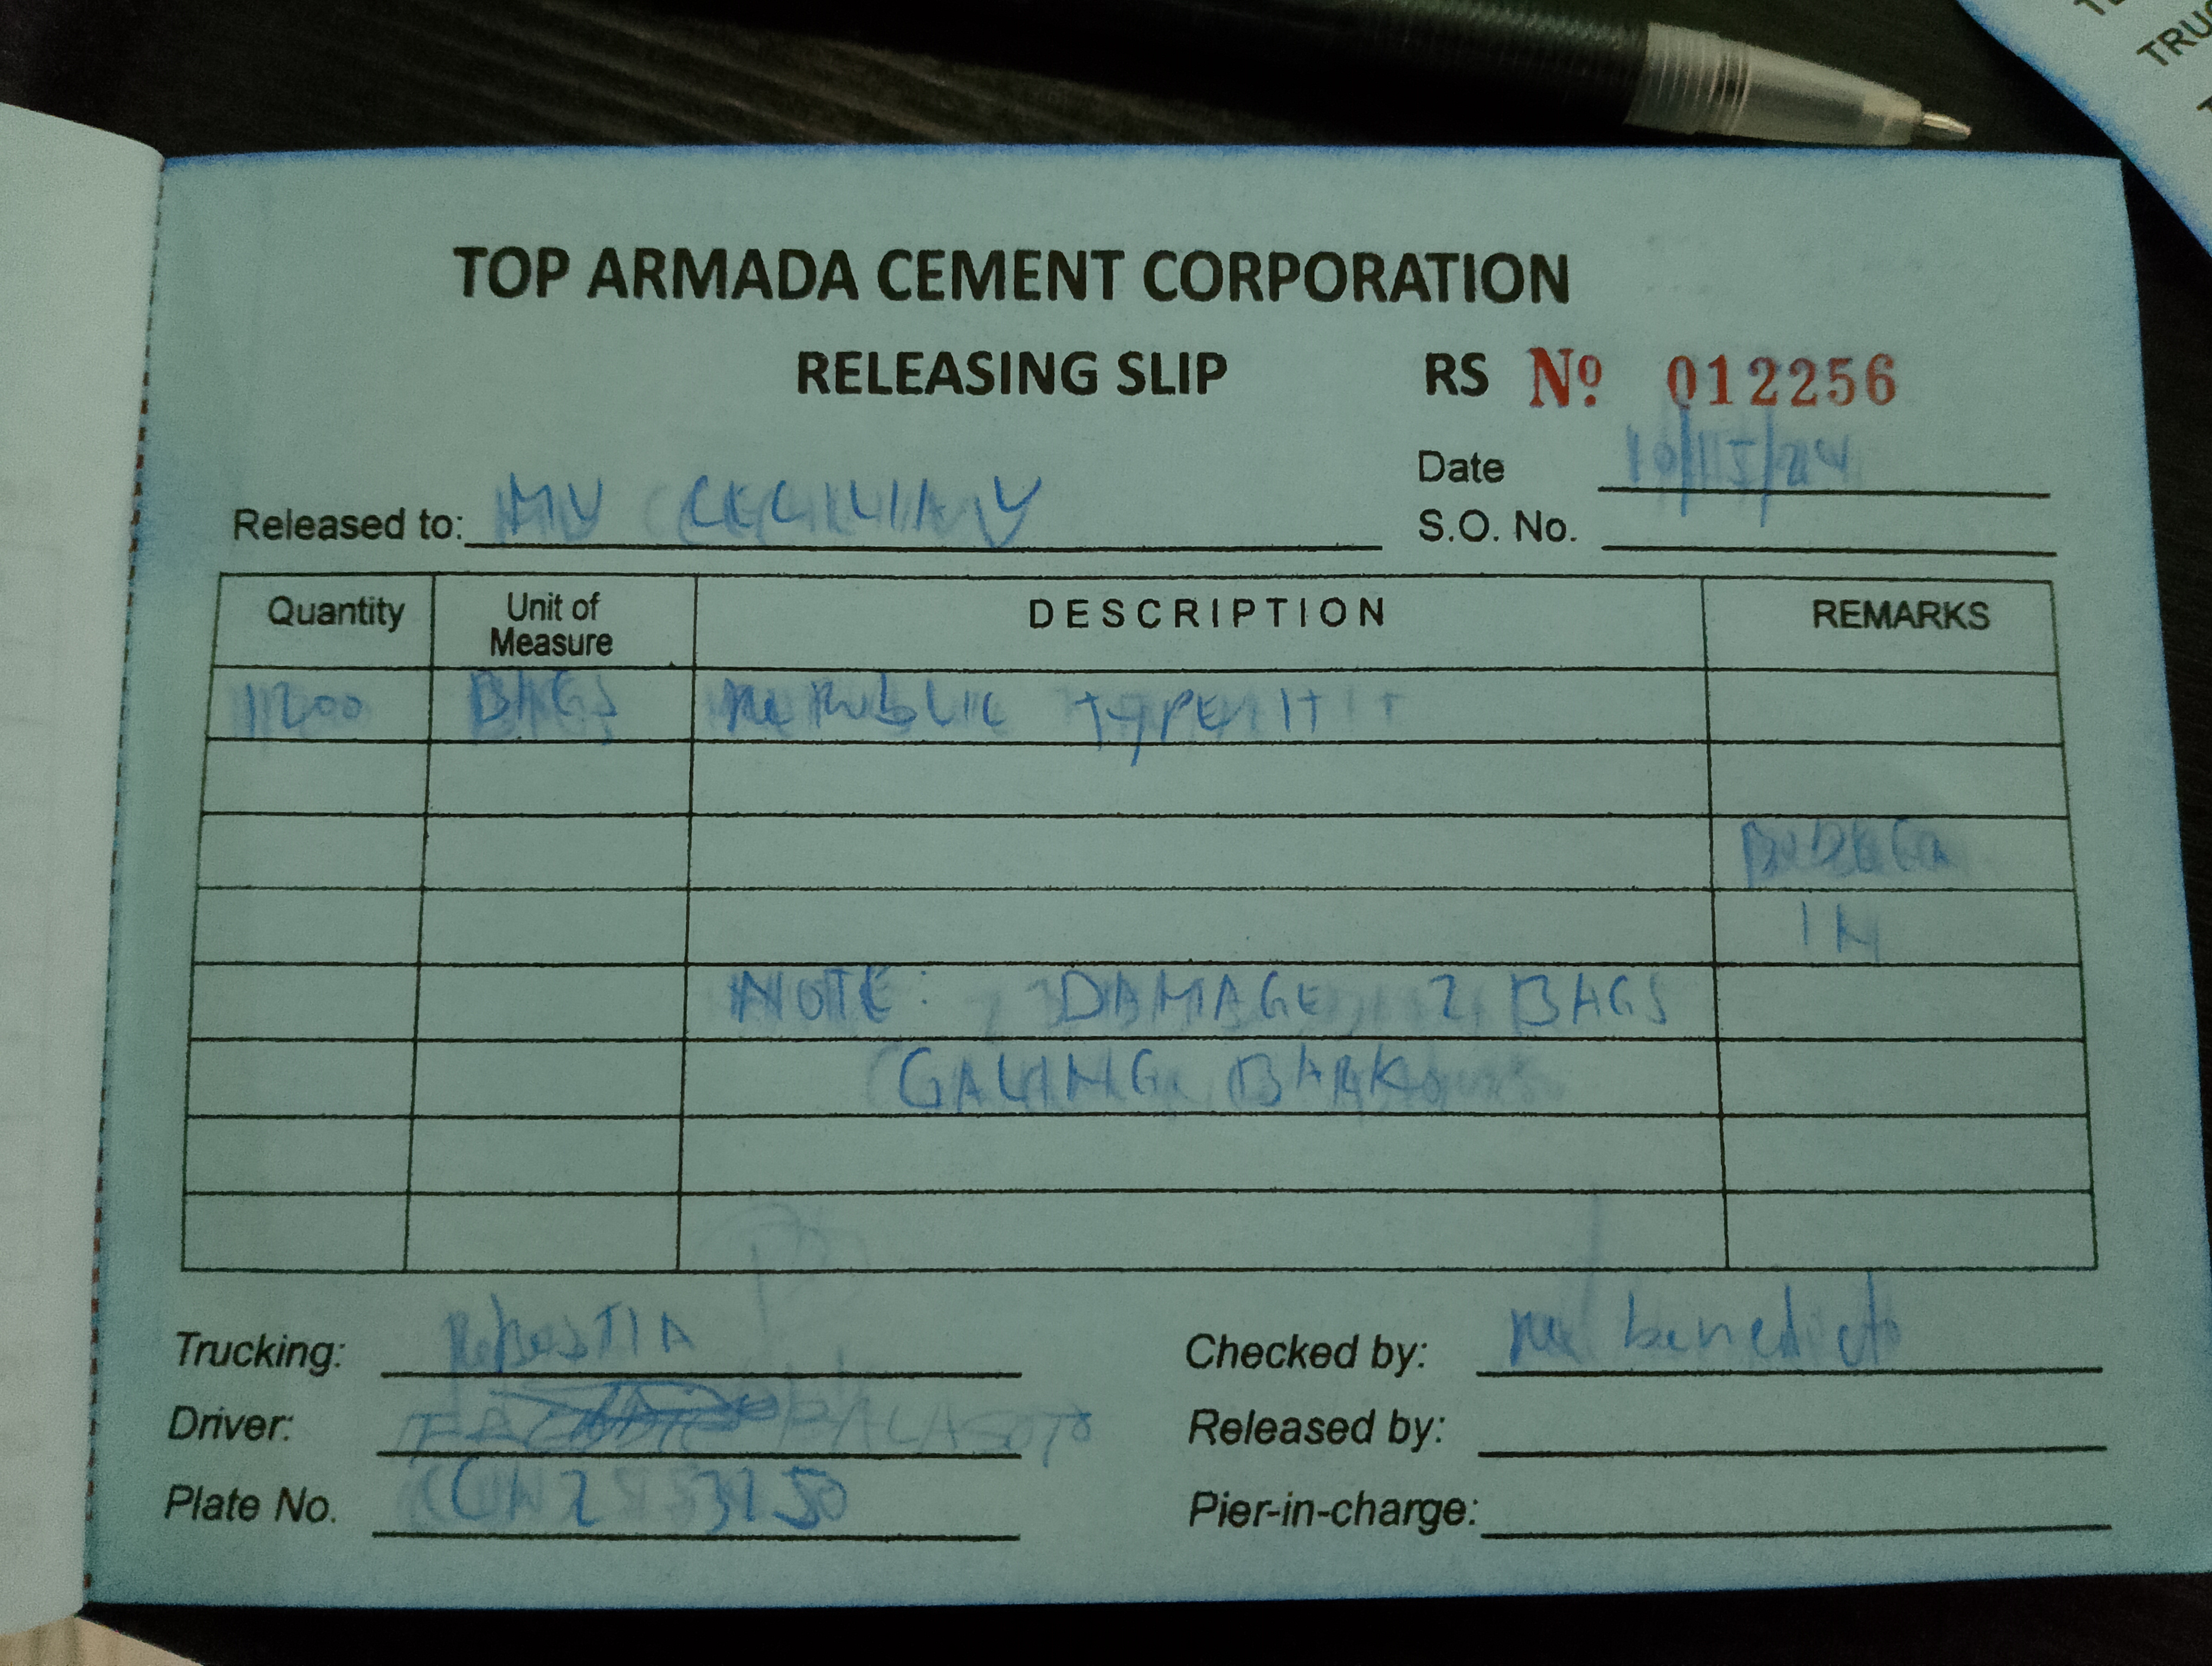 TRUC
TOP ARMADA CEMENT CORPORATION
RELEASING SLIP RS Nº 012256
Date 10/15/24
Released to: MV CECILIA V
S.O. No.
Quantity Unit of Measure DESCRIPTION REMARKS
BAGS REPUBLIC TYPE 1T
BODEGA
IN
NOTE: DAMAGE 2 BAGS
GALING BARKO
Trucking:
Checked by: benedicto
Driver: BALASOTO
Released by:
Plate No. 3250
Pier-in-charge: